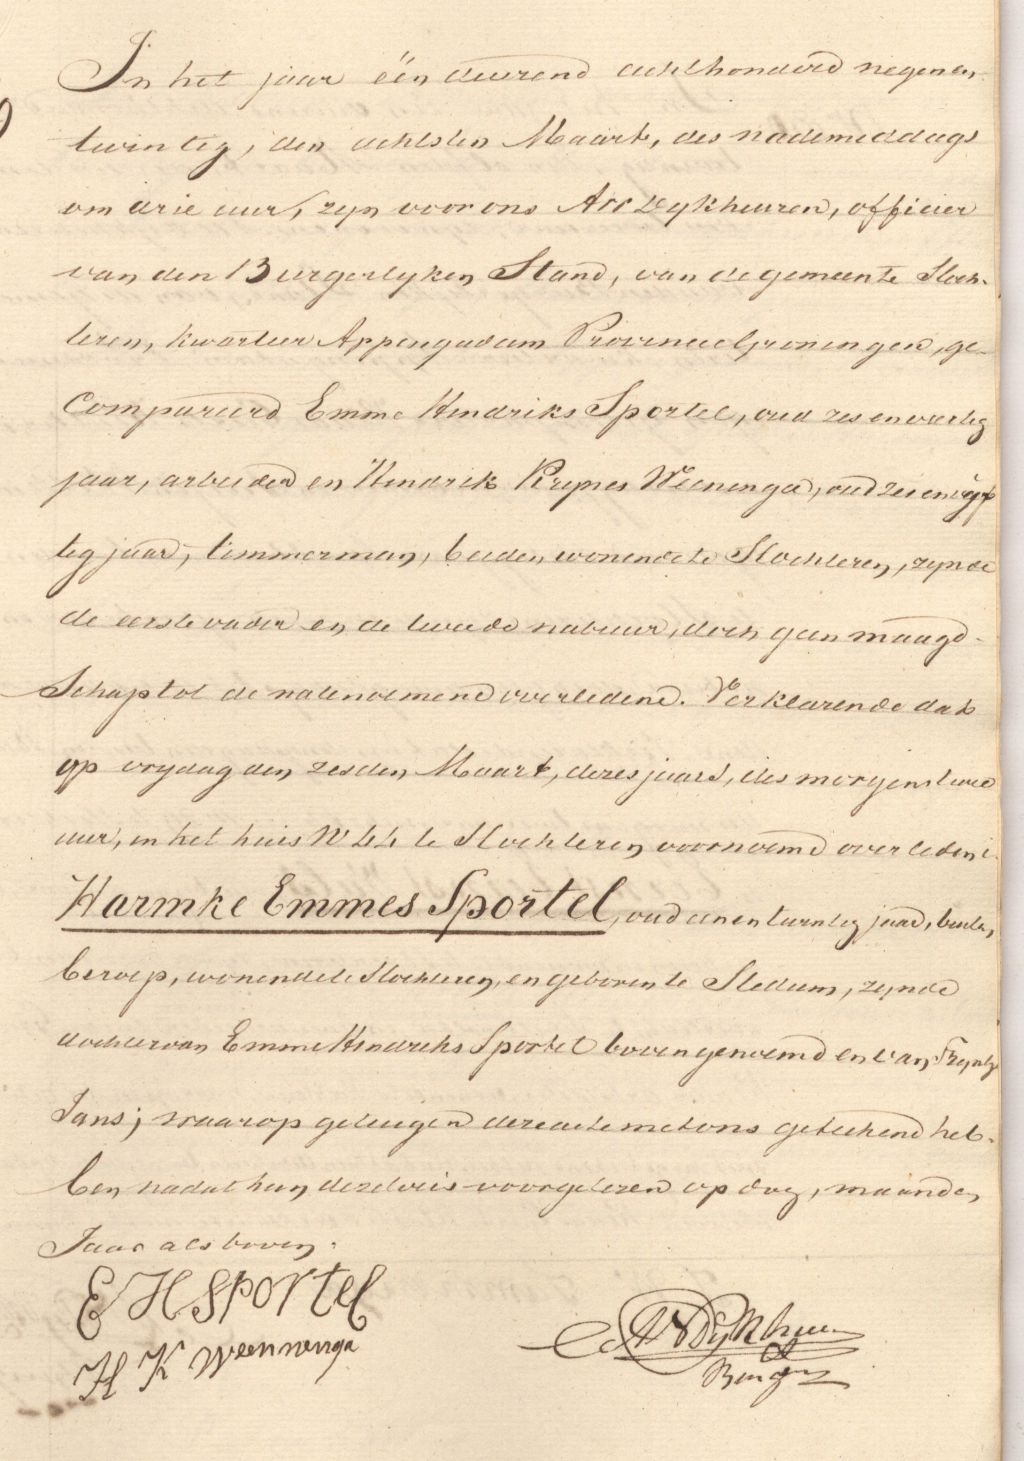 In het jaar één duizend achthonderd negenen
twintig, den achtsten Maart, des nademiddags
om drie uur, zyn voor ons Dykhuizen, officier
van den Burgerlyken Stand, van de gemeente Sloch-
teren, kwartier Appengadam Provincie Groningen, ge-
compareerd Emme Hendriks Sportel, oud zes en veertig
jaar, arbeider en Hendrik Weeninga, oud zes en vyf
tig jaar, timmerman, beiden wonende te Slochteren, zynde
de eerste vader en de tweede nabuur, doch geen maagd-
schap tot de natenoemene overledene. Verklarende dat
op vrydag den zesden Maart, dezes jaars, des morgens twee
uur, in het huis te Slochteren voornoemd overleden is
Harmke Emmes Sportel, oud een en twintig jaar, buiten
beroep, wonende te Slochteren, en geboren te Stedum, zynde
dochter van Emme Hendriks Sportel bovengenoemd en van
Jans; waarop getuigen deze acte met ons geteekend heb-
ben nadat hun dezelve is voorgelezen op dag, maand en
Jaar als boven.
E H Sportel
H K Weenninga
Dykhuizen